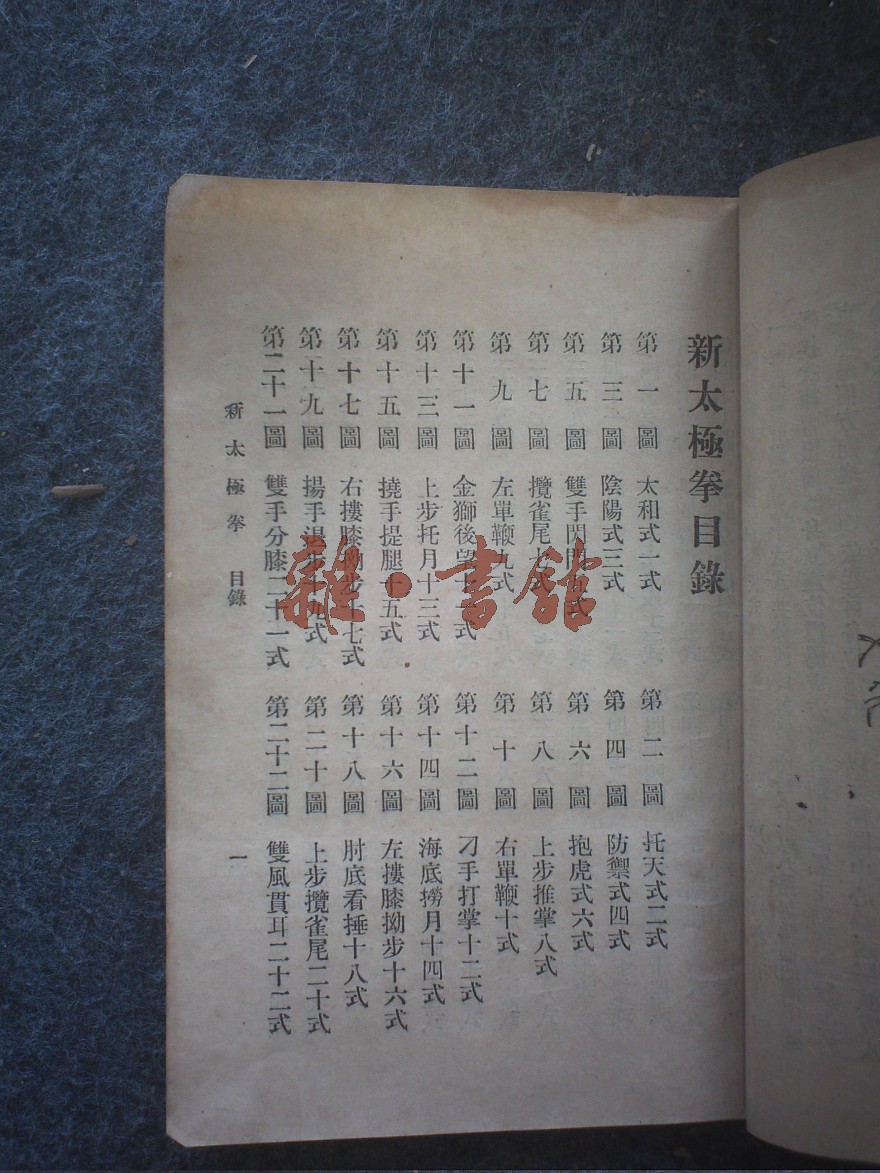 新太極拳目錄
第一圖 太和式一式 第二圖 托天式二式
第三圖 陰陽式三式 第四圖 防禦式四式
第五圖 雙手閃門五式 第六圖 抱虎式六式
第七圖 攬雀尾七式 第八圖 上步推掌八式
第九圖 左單鞭九式 第十圖 右單鞭十式
第十一圖 金獅後望十一式 第十二圖 刁手打掌十二式
第十三圖 上步托月十三式 第十四圖 海底撈月十四式
第十五圖 撓手提腿十五式 第十六圖 左摟膝拗步十六式
第十七圖 右摟膝拗步十七式 第十八圖 肘底看捶十八式
第十九圖 揚手退步十九式 第二十圖 上步攬雀尾二十式
第二十一圖 雙手分膝二十一式 第二十二圖 雙風貫耳二十二式
新太極拳 目錄 一
雜·書館